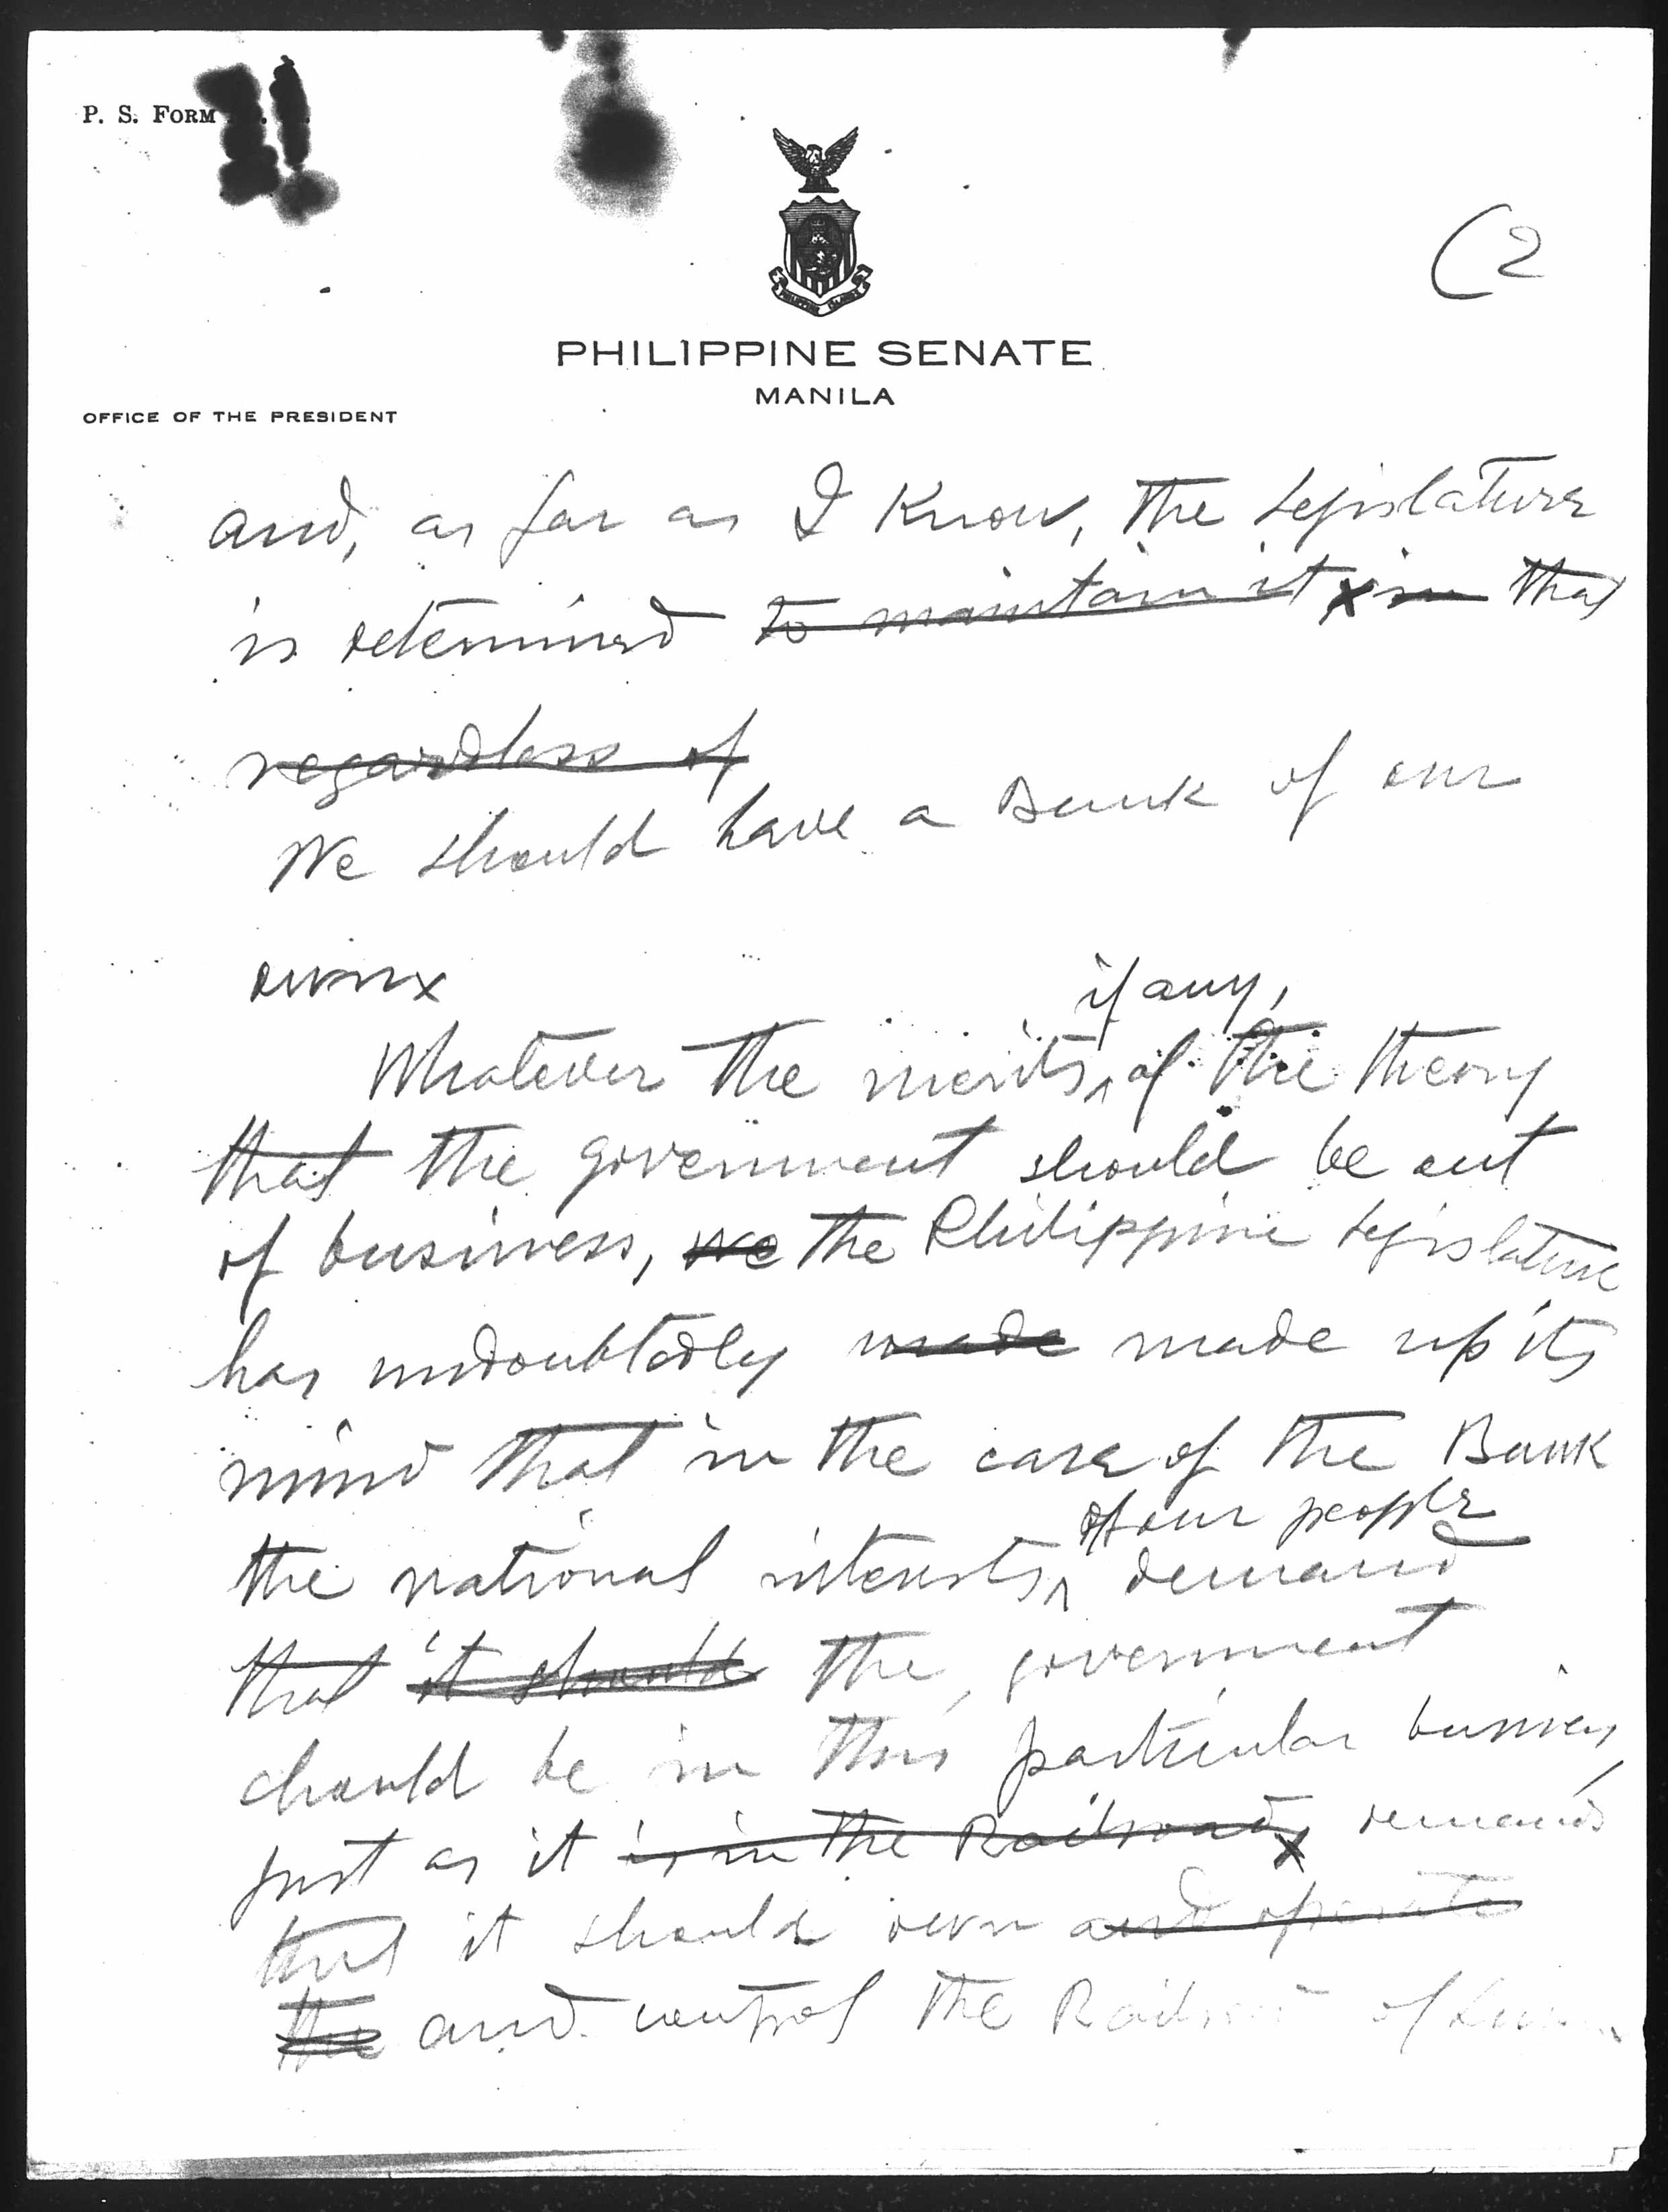 P. S. FORM
(2
PHILIPPINE ISLANDS
PHILIPPINE SENATE
MANILA
OFFICE OF THE PRESIDENT
and, as far as I know, the Legislature
is determined to maintain it x in that
regardless of
We should have a Bank of our
own x
if any,
Whatever the merits, of the theory
that the government should be out
of business, we the Philippine Legislature
has undoubtedly made made up its
mind that in the case of the Bank
of our people
the national interests, demand
that it should the government
should be in this particular business,
just as it is in the Railroad, x demands
that it should own and operate
the and control the Railroad of